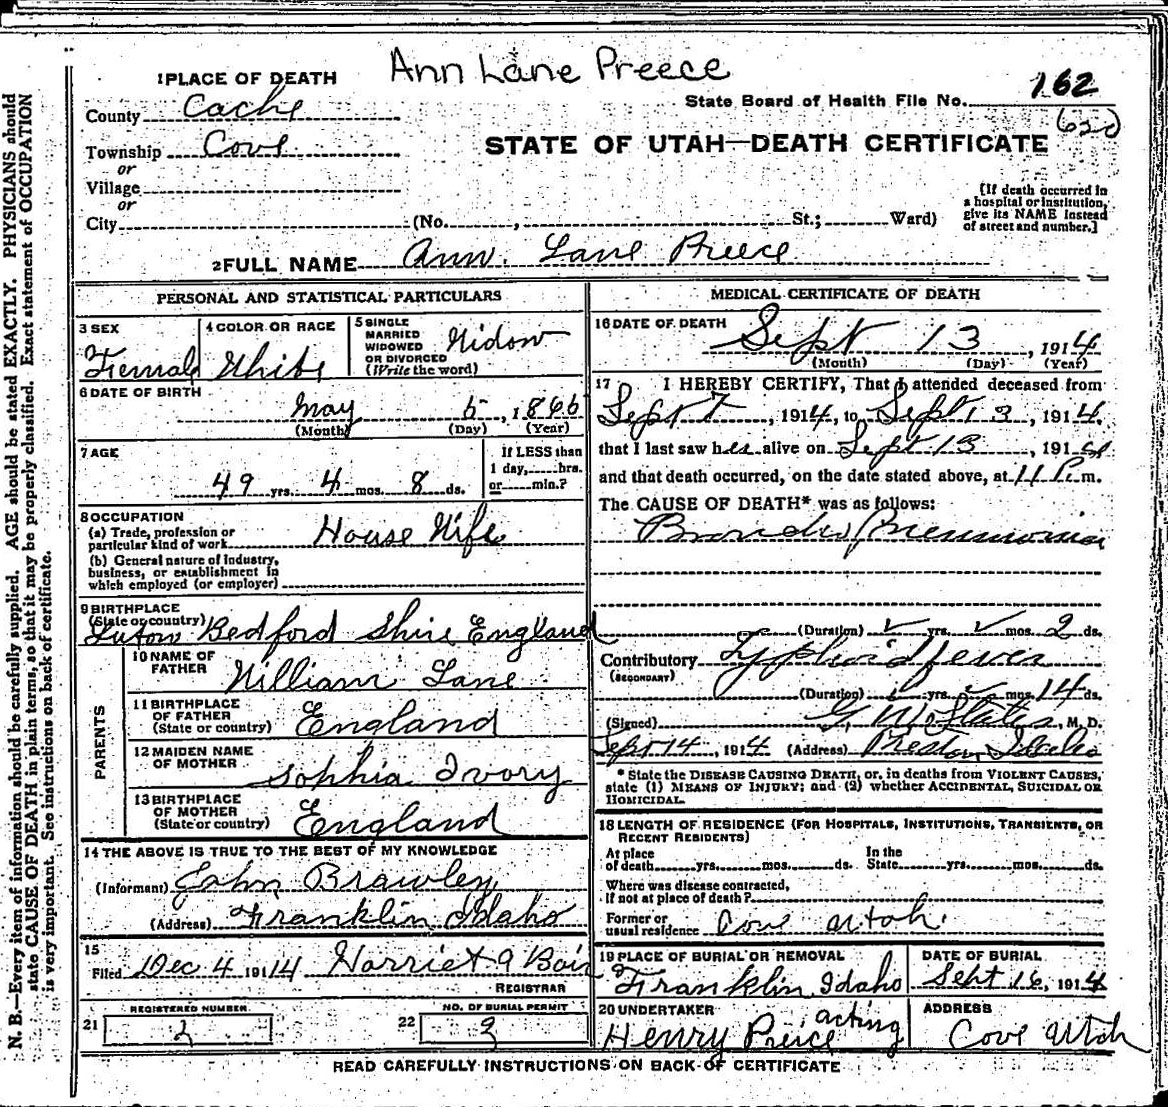 Ann Lane Preece
1 PLACE OF DEATH
162
State Board of Health File No.
County Cache
Township Cove
STATE OF UTAH—DEATH CERTIFICATE
or
Village
or
City (No. , St.; Ward)
[If death occurred in
a hospital or institution,
give its NAME instead
of street and number.]
2 FULL NAME Ann. Lane Preece
PERSONAL AND STATISTICAL PARTICULARS
3 SEX
Female
4 COLOR OR RACE
White
5 SINGLE
MARRIED
WIDOWED
OR DIVORCED
(Write the word)
Widow
6 DATE OF BIRTH
May 5, 1866
(Month) (Day) (Year)
7 AGE
49 yrs. 4 mos. 8 ds.
If LESS than
1 day, hrs.
or min.?
8 OCCUPATION
(a) Trade, profession or
particular kind of work House Wife
(b) General nature of industry,
business, or establishment in
which employed (or employer)
9 BIRTHPLACE
(State or country)
Luton Bedford Shire England
PARENTS
10 NAME OF
FATHER
William Lane
11 BIRTHPLACE
OF FATHER
(State or country)
England
12 MAIDEN NAME
OF MOTHER
Sophia Ivory
13 BIRTHPLACE
OF MOTHER
(State or country)
England
14 THE ABOVE IS TRUE TO THE BEST OF MY KNOWLEDGE
(Informant) John Brawley
(Address) Franklin, Idaho
15
Filed Dec 4 1914 Harriet A Bair
REGISTRAR
21
REGISTERED NUMBER
2
22
NO. OF BURIAL PERMIT
2
MEDICAL CERTIFICATE OF DEATH
16 DATE OF DEATH
Sept 13, 1914
(Month) (Day) (Year)
17 I HEREBY CERTIFY, That I attended deceased from
Sept 7, 1914, to Sept 13, 1914.
that I last saw her alive on Sept 13, 191
and that death occurred, on the date stated above, at 11 P. m.
The CAUSE OF DEATH* was as follows:
Broncho Pneumonia
(Duration) yrs. mos. 2 ds.
Contributory Typhoid fever
(SECONDARY)
(Duration) yrs. mos. 14 ds.
(Signed) G. W. States, M. D.
Sept 14, 1914 (Address) Preston, Idaho
* State the DISEASE CAUSING DEATH, or, in deaths from VIOLENT CAUSES,
state (1) MEANS OF INJURY; and (2) whether ACCIDENTAL, SUICIDAL OR
HOMICIDAL.
18 LENGTH OF RESIDENCE (FOR HOSPITALS, INSTITUTIONS, TRANSIENTS, OR
RECENT RESIDENTS)
At place
of death yrs. mos. ds.
In the
State yrs. mos. ds.
Where was disease contracted,
If not at place of death?
Former or
usual residence Cove Utah.
19 PLACE OF BURIAL OR REMOVAL
Franklin Idaho
DATE OF BURIAL
Sept 16, 1914
20 UNDERTAKER
acting
Henry Preice
ADDRESS
Cove Utah
READ CAREFULLY INSTRUCTIONS ON BACK OF CERTIFICATE
N. B.—Every item of information should be carefully supplied. AGE should be stated EXACTLY. PHYSICIANS should
state CAUSE OF DEATH in plain terms, so that it may be properly classified. Exact statement of OCCUPATION
is very important. See instructions on back of certificate.